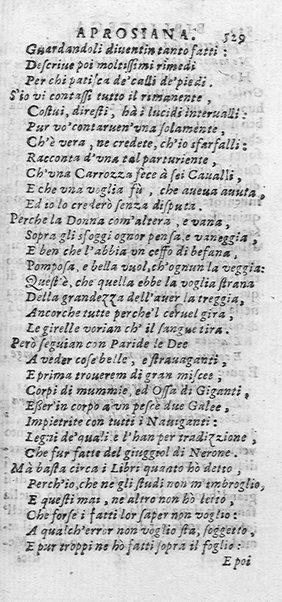 APROSIANA. 529
Guardandoli diventin tanto fatti :
Descrive poi moltissimi rimedi
Per chi patisca de'calli de'piedi.
S'io vi contassi tutto il rimanente ,
Costui, diresti, hà i lucidi intervalli :
Pur vo'contarven'vna solamente,
Ch'è vera, ne credete, ch'io sfarfalli :
Racconta d'vna tal parturiente,
Ch'vna Carrozza fece à sei Cavalli ,
E che vna voglia fù , che aveva avuta ,
Ed io lo crederò senza disputa.
Perche la Donna com'altera , e vana ,
Sopra gli sfoggi ognor pensa, e vaneggia ,
E ben che l'abbia vn ceffo di befana ,
Pomposa, e bella vuol, ch'ognun la veggia:
Quest'è, che quella ebbe la voglia strana
Della grandezza dell'aver la treggia,
Ancorche tutte perche'l cervel gira ,
Le girelle vorian ch' il sangue tira.
Però seguian con Paride le Dee
A veder cose belle , e stravaganti ,
E prima troverem di gran miscee ,
Corpi di mummie, ed Ossa di Giganti ,
Esser'in corpo a vn pesce due Galee ,
Impietrite con tutti i Naviganti :
Legni de'quali è l'han per tradizzione ,
Che fur fatte del giuggiol di Nerone.
Mà basta circa i Libri quanto hò detto ,
Perch'io, che ne gli studi non m'imbroglio,
E questi mai , ne altro non hò letto ,
Che forse i fatti lor saper non voglio :
A qualch'error non voglio stà, soggetto ,
E pur troppi ne hò fatti sopra il foglio :
E poi